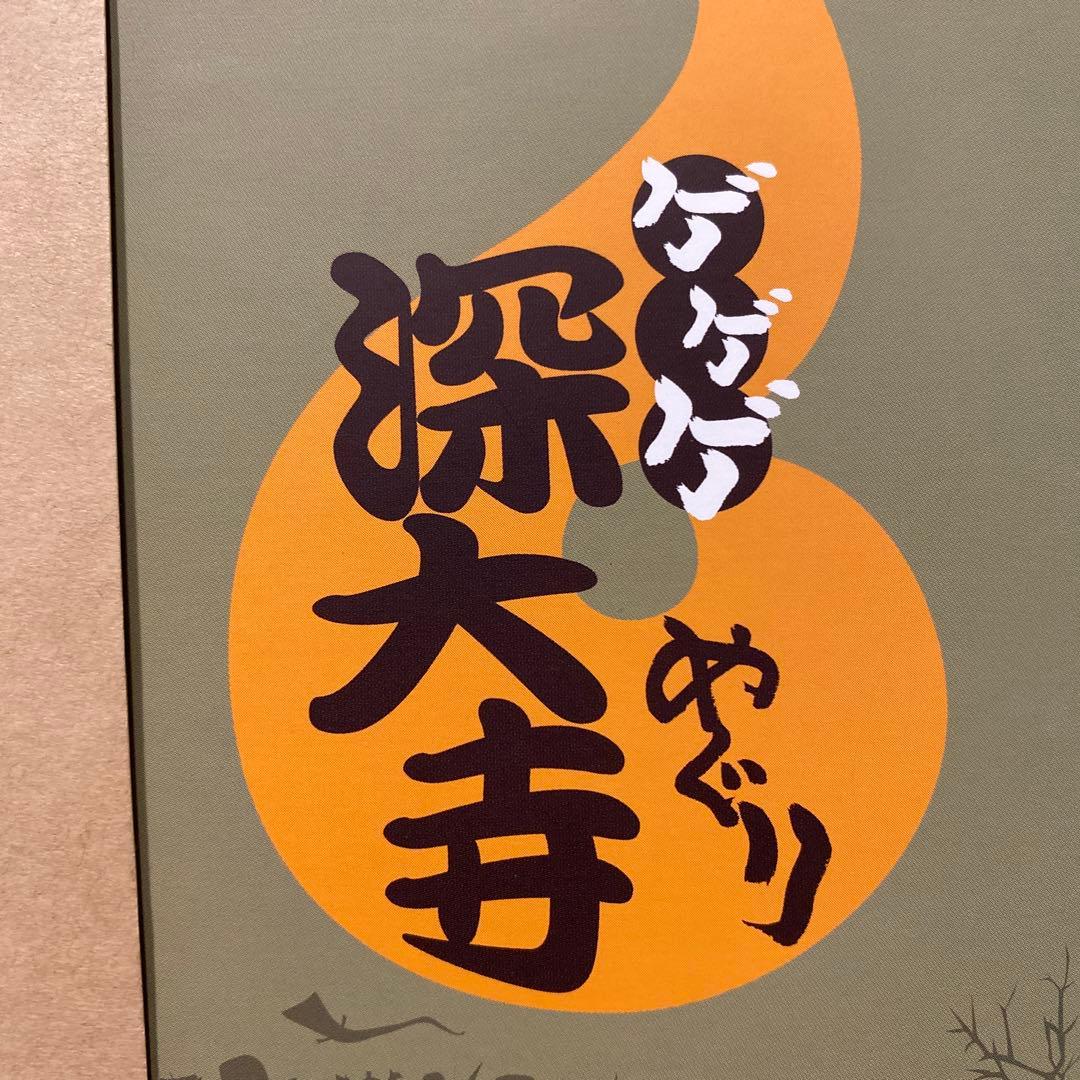 ゲゲゲ
めぐり
深大寺